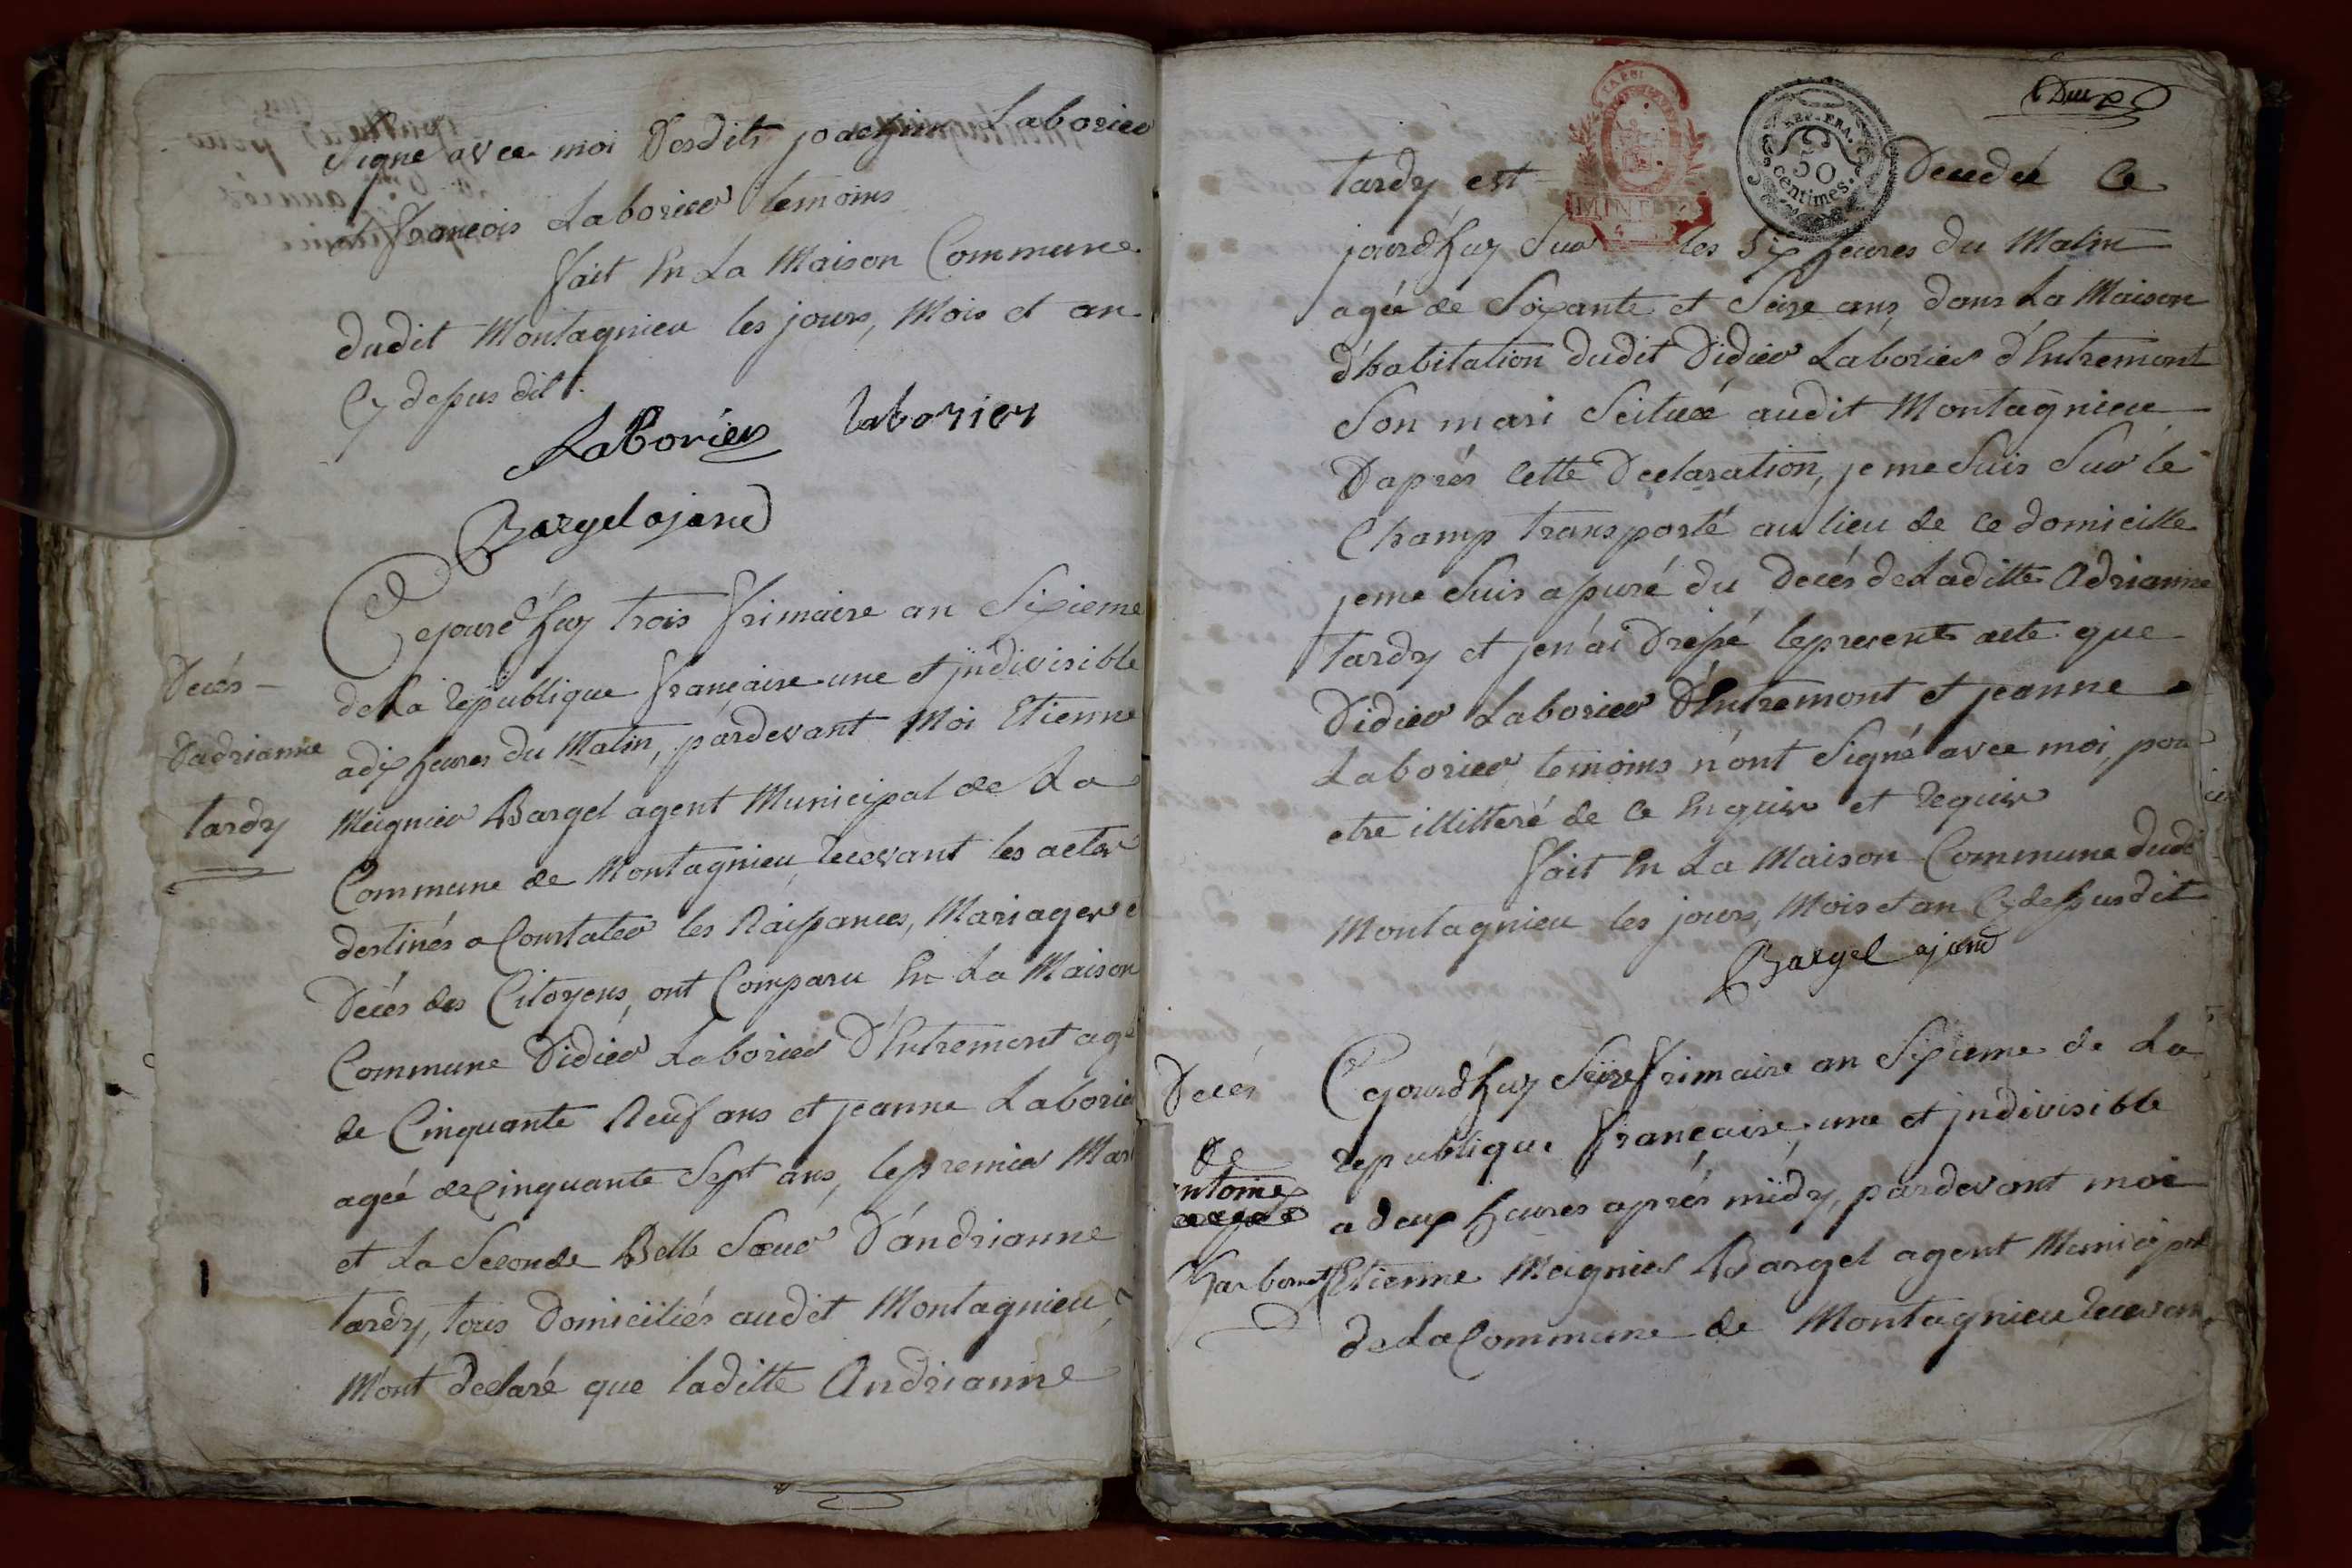 Signé avec moi Desdits joachim Laborier
et François Laborier temoins
fait En La Maison Commune
dudit Montagnieu les jours, Mois et an
Cy dessus dit
Laborier laborier
Bargel ajand
Cejourd'huy trois frimaire an Sixieme
de La republique française une et jndivisible
a dix heures du Matin, pardevant Moi Etienne
Meignier Bargel agent Municipal de La
Commune de Montagnieu, recevant les actes
destinés a Constater les Naissances, Mariages e
Decés des Citoyens, ont Comparu En La Maison
Commune Didier Laborier D'Entremont agé
de Cinquante Neuf ans et jeanne Laborie
ageé de Cinquante Sept ans, le premier Mari
et La Seconde Belle Sœur D'andrianne
tardy, tous Domiciliés audit Montagnieu,
M'ont declaré que laditte Andrianne
Decés
D'adrianne
tardy
tardy est Decedeé Ce
jourd'huy Sur les Six heures du Matin
ageé de Soixante et Seize ans, dans La Maison
d'habitation dudit Didier Laborier d'Entremont
Son mari Scitueé audit Montagnieu
D'aprés Cette Declaration, je me Suis Sur le
Champ transporté au lieu de ce domicille
je me Suis assuré du Decés de Laditte Adrianne
tardy et j'en ai Dressé le present acte que
Didier Laborier D'Entremont et jeanne
Laborier temoins n'ont Signé avec moi, pour
etre illitteré de ce Enquis et requis
fait En La Maison Commune dudi
Montagnieu les jours, Mois et an Cy dessus dit
Bargel ajand
Cejourd'huy Seize frimaire an Sixieme de La
republique française, une et jndivisible
a deux heures aprés midy, pardevant moi
Etienne Meignier Bargel agent Municipal
de La Commune de Montagnieu recevan
Decés
de
ntoine
harbonnet
REP. FRA.
50
centimes.